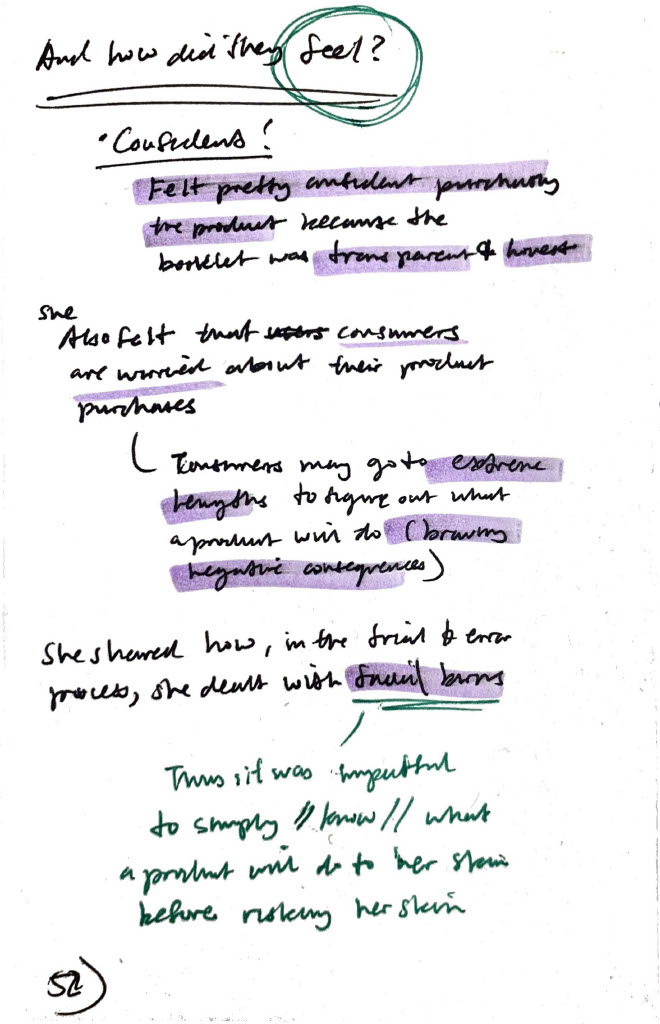 And how did they feel?
• Confident!
Felt pretty confident purchasing
the product because the
booklet was transparent & honest
she
Also felt that users consumers
are worried about their product
purchases
Consumers may go to extreme
lengths to figure out what
a product will do (braving
negative consequences)
She shared how, in the trial & error
process, she dealt with facial burns
Thus it was impactful
to simply //know// what
a product will do to her skin
before risking her skin
52